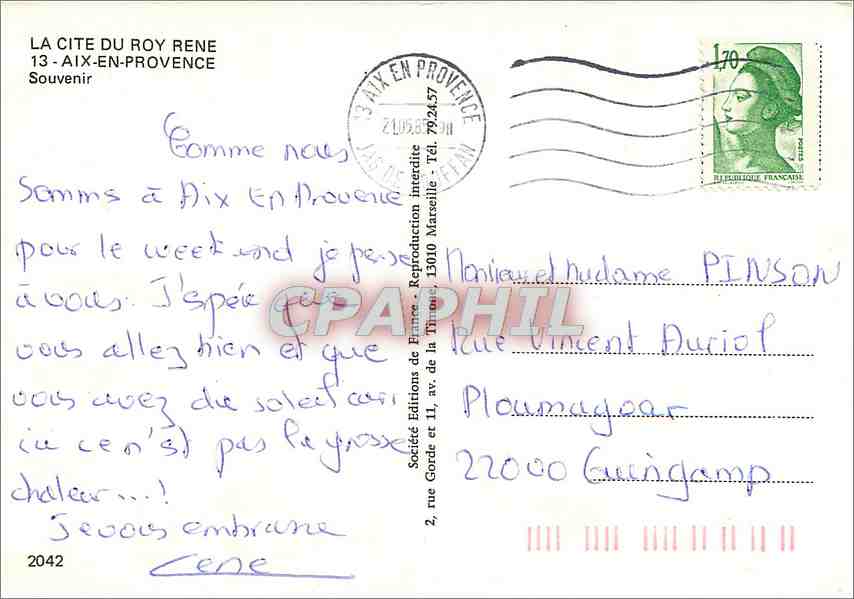 LA CITE DU ROY RENE
13 - AIX-EN-PROVENCE
Souvenir
Comme nous
Somms à Aix En Provence
pour le week end je pense
à vous. J'spère que
vous allez bien et que
vous avez du soleil car
ici ce n'est pas la grosse
chaleur...!
Je vous embrasse
2042
Société Editions de France - Reproduction interdite
2, rue Gorde et 11, av. de la Timone, 13010 Marseille - Tél. 79.24.57
13 AIX EN PROVENCE
21.05.85
JAS DE BOUFFAN
1,70
POSTES
REPUBLIQUE FRANÇAISE
Monsieur et Madame PINSON
Rue Vincent Auriol
Ploumagoar
22000 Guingamp
CPAPHIL